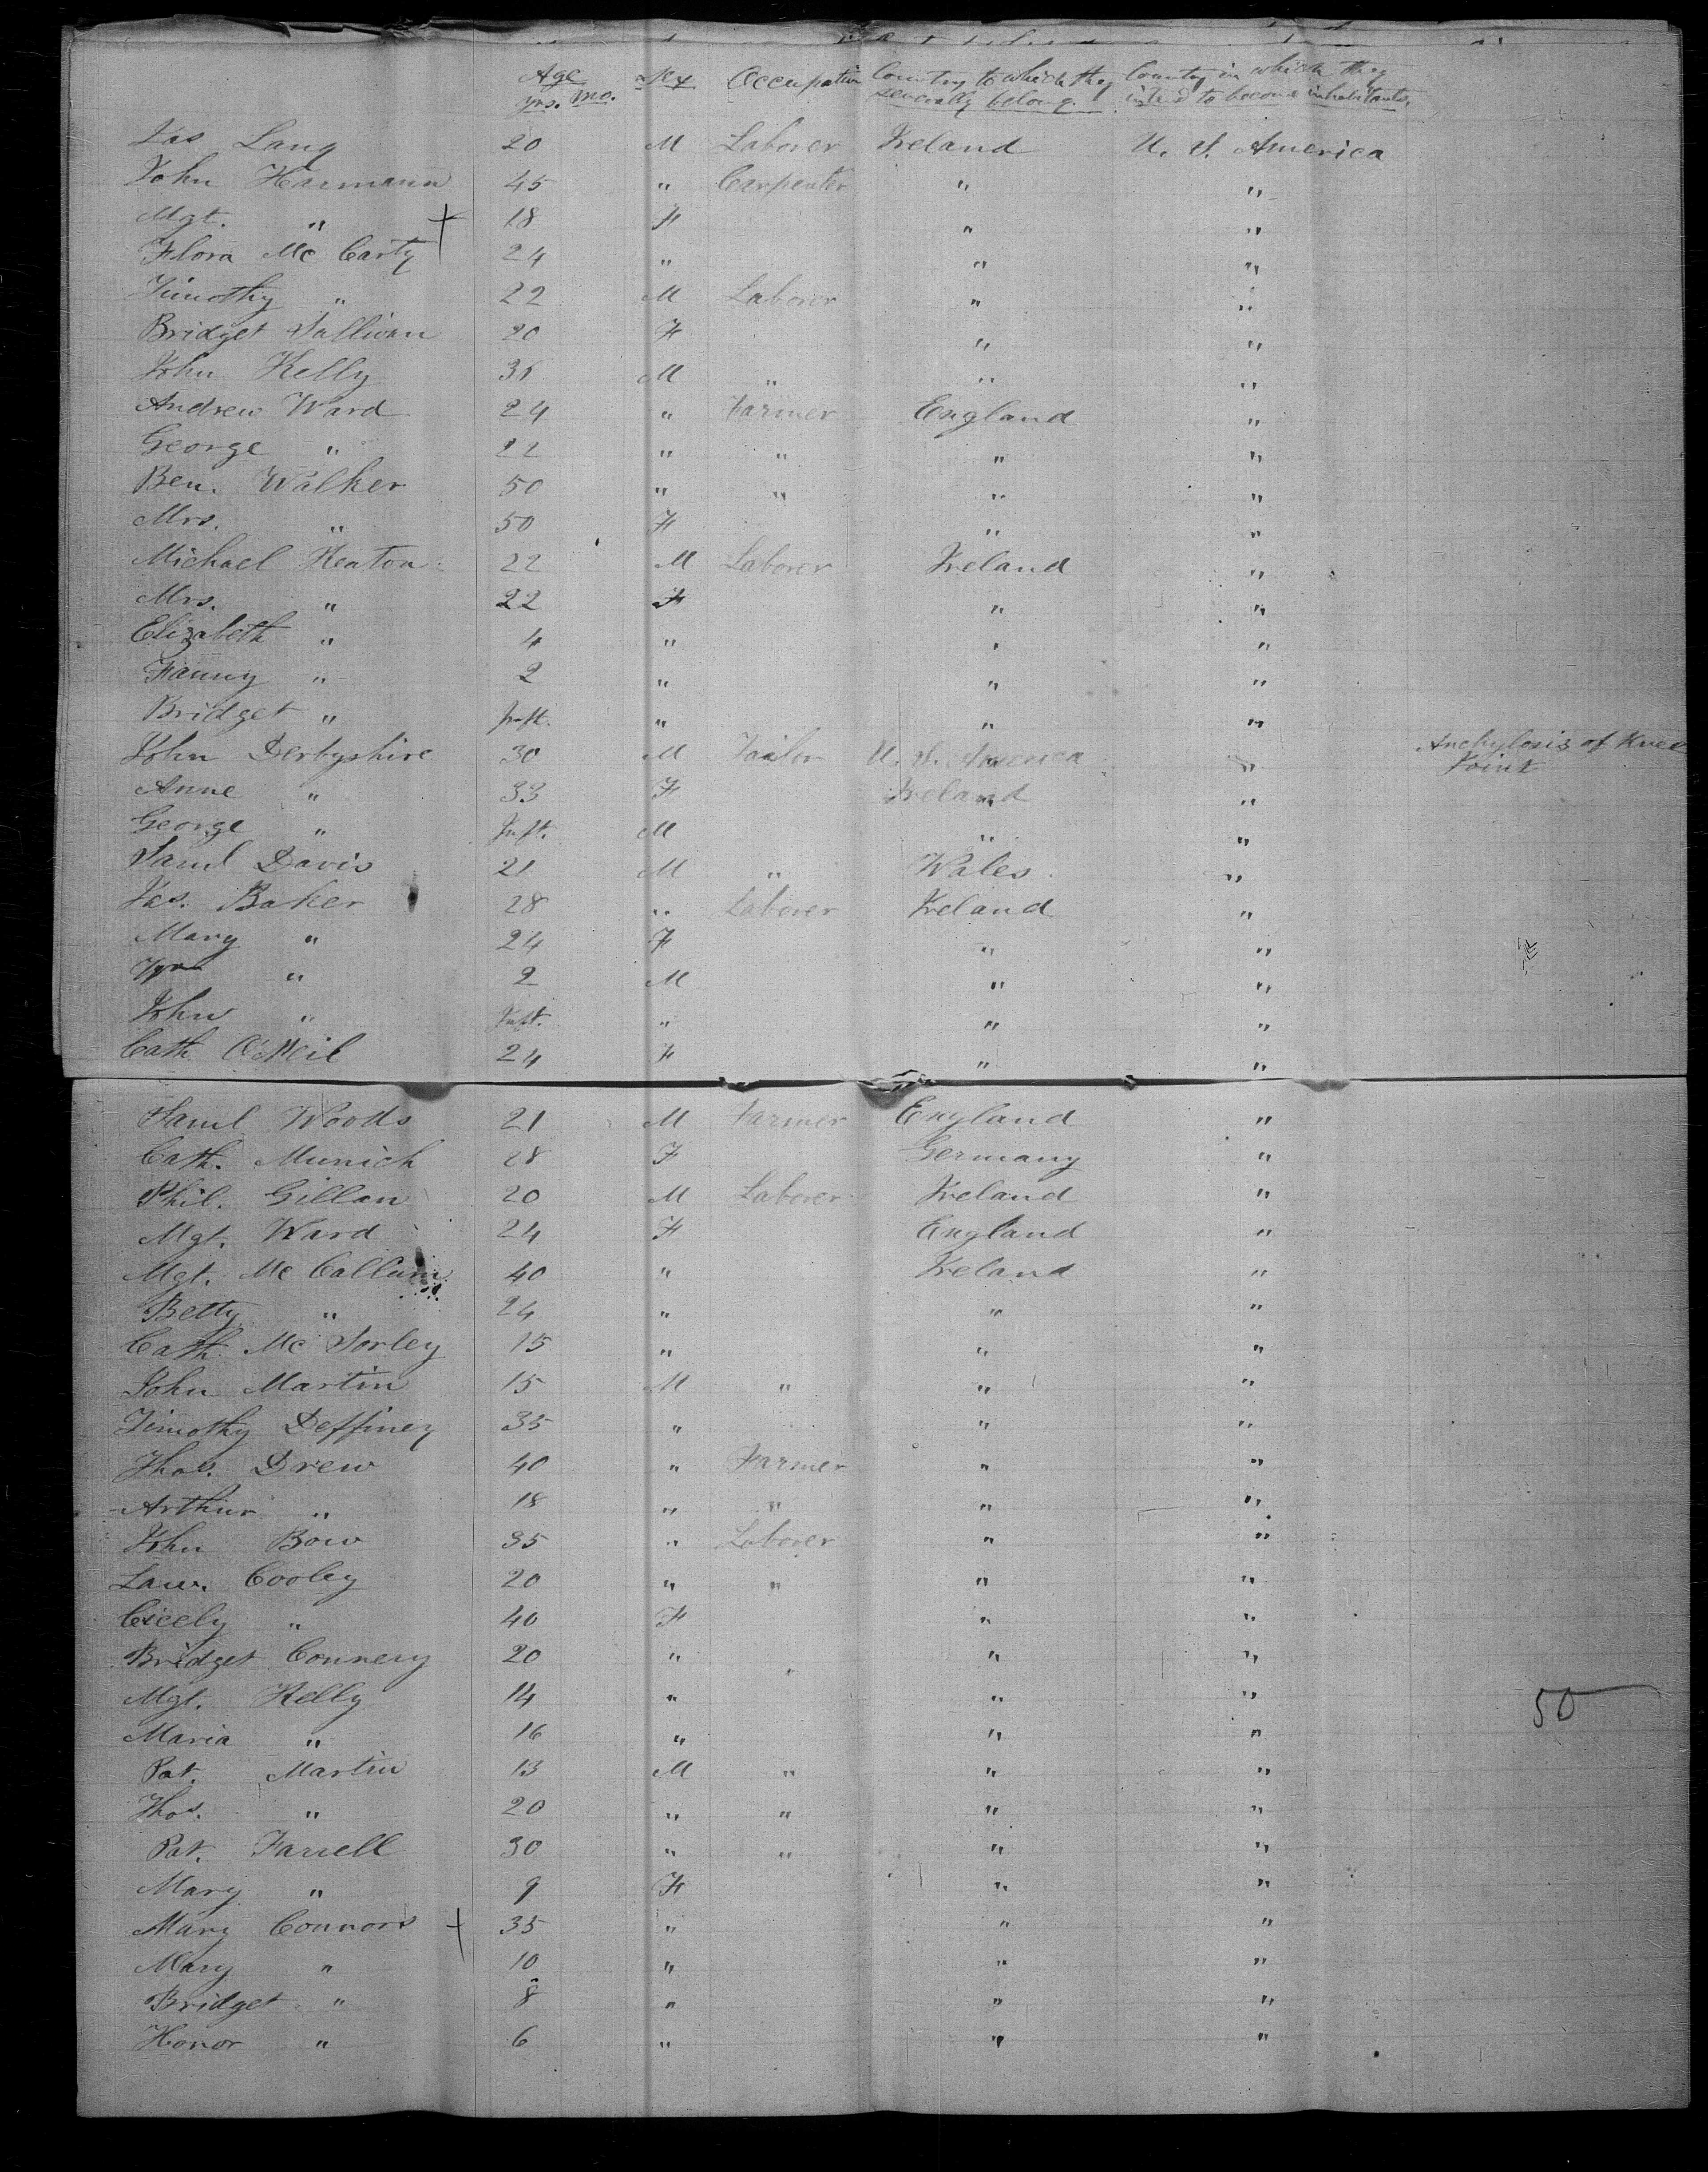 Age Sex Occupation Country to which they Country in which they
yrs. mo. severally belong. intend to become inhabitants.
Jas Lang 20 M Laborer Ireland U. S. America
John Harmann 45 " Carpenter " "
Mgt. " 18 F " "
Flora Mc Carty 24 " " "
Timothy " 22 M Laborer " "
Bridget Sullivan 20 F " "
John Kelly 35 M " " "
Andrew Ward 24 " Farmer England "
George " 22 " " " "
Ben. Walker 50 " " " "
Mrs. " 50 F " "
Michael Heaton 22 M Laborer Ireland "
Mrs. " 22 F " "
Elizabeth " 4 " " "
Fanny " 2 " " "
Bridget " Inft. " " "
John Derbyshire 30 M Tailor U. S. America " Anchylosis of Knee Joint
Anne " 33 F Ireland "
George " Inft. M " "
Saml Davis 21 M " Wales "
Jas. Baker 28 " Laborer Ireland "
Mary " 24 F " "
Wm " 2 M " "
John " Inft. " " "
Cath O'Neil 24 F " "
Saml Woods 21 M Farmer England "
Cath. Munich 28 F Germany "
Phil. Gillan 20 M Laborer Ireland "
Mgt. Ward 24 F England "
Mgt. Mc Callum 40 " Ireland "
Betty " 24 " " "
Cath. Mc Sorley 15 " " "
John Martin 15 M " " "
Timothy Deffiney 35 " " "
Thos. Drew 40 " Farmer " "
Arthur " 18 " " " "
John Bow 35 " Laborer " "
Law. Cooley 20 " " " "
Cicely " 40 F " "
Bridget Connery 20 " " " "
Mgt. Kelly 14 " " "
Maria " 16 " " " 50
Pat. Martin 13 M " " "
Thos. " 20 " " " "
Pat. Farrell 30 " " " "
Mary " 9 F " "
Mary Connors 35 " " "
Mary " 10 " " "
Bridget " 8 " " "
Honor " 6 " " "